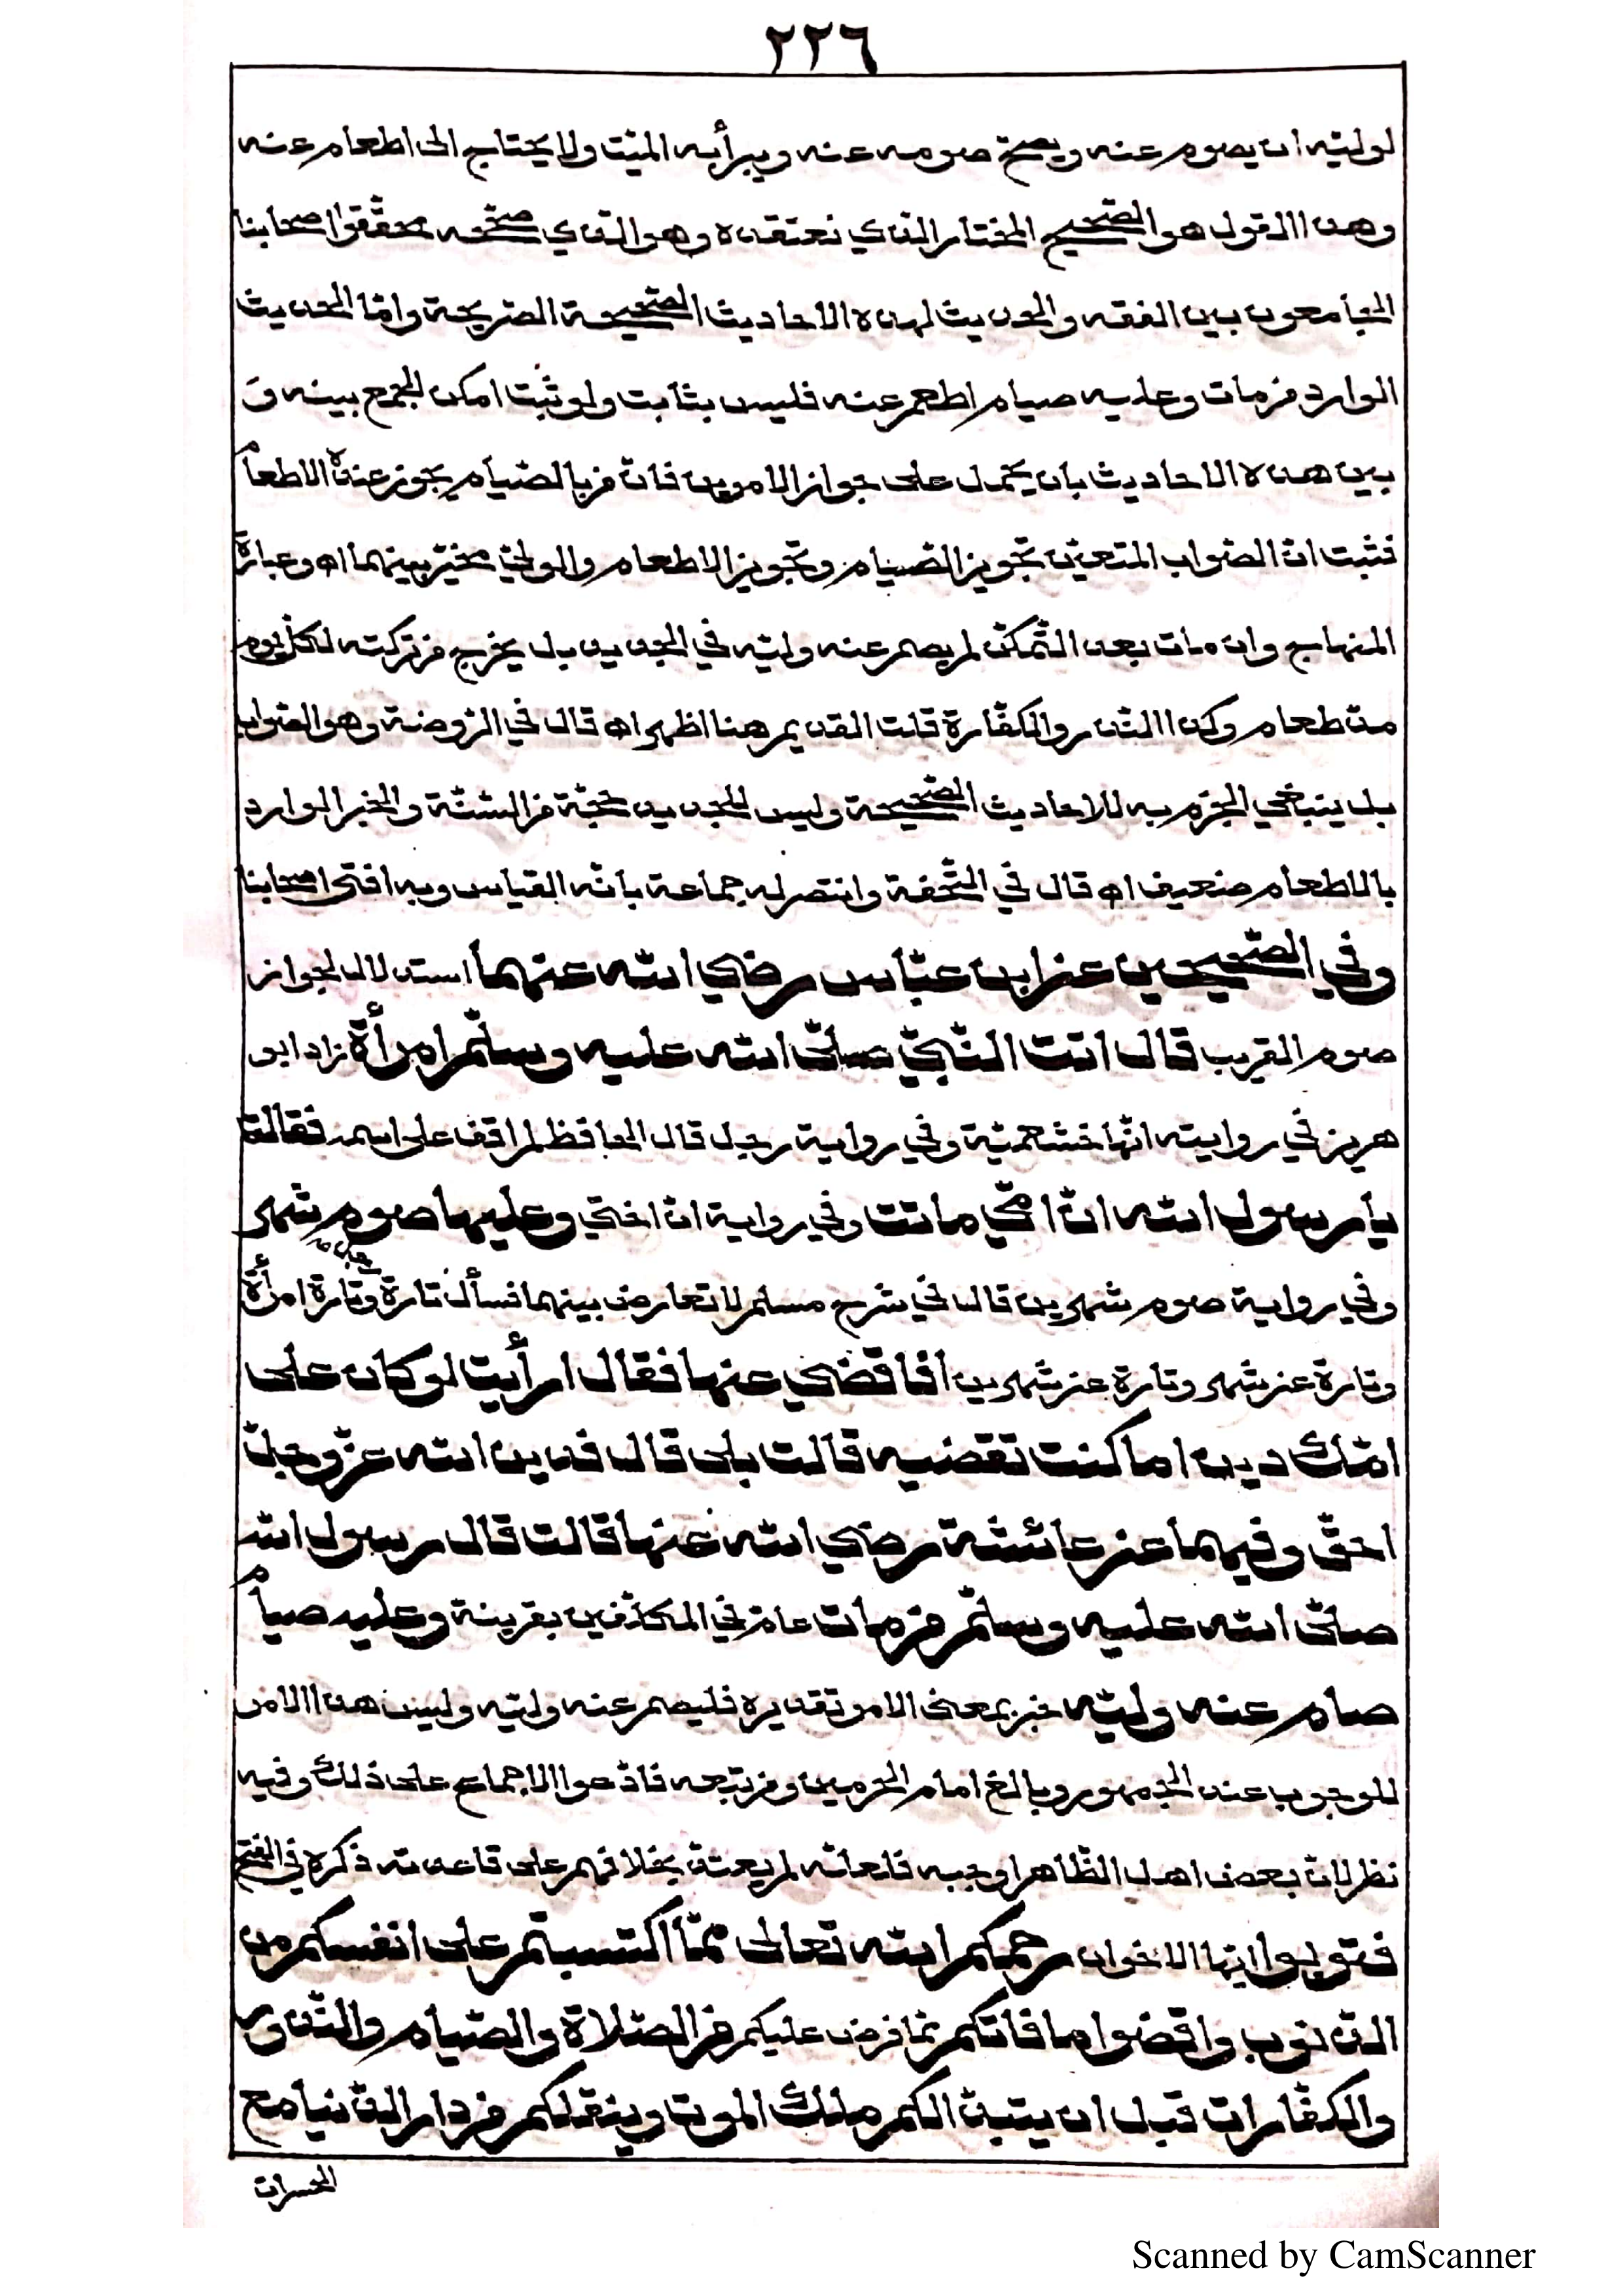 ٢٢٦
لوليّه ان يصوم عنه ويصحّ صومه عنه ويبرأ به الميّت ولا يحتاج الى اطعام عنه
وهذا القول هو الصّحيح المختار الّذي نعتقده وهو الّذي صحّحه محقّقوا اصحابنا
الجامعون بين الفقه والحديث لهذه الاحاديث الصّحيحة الصّريحة وامّا الحديث
الوارد من مات وعليه صيام اطعم عنه فليس بثابت ولو ثبت امكن الجمع بينه و
بين هذه الاحاديث بان يحمل على جواز الامرين فانّ من بالصّيام يجوز عنده الاطعام
فثبت انّ الصّواب المتعيّن تجويز الصّيام وتجويز الاطعام والوليّ مخيّر بينهما اه وعبارة
المنهاج وان مات بعد التّمكّن لم يصم عنه وليّه في الجديد بل يخرج من تركته لكلّ يوم
مدّ طعام وكذا النّذر والكفّارة قلت القديم هنا اظهر اه قال في الرّوضة وهو الصّواب
بل ينبغي الجزم به للاحاديث الصّحيحة وليس للجديد حجّة من السّنّة والخبر الوارد
بالاطعام ضعيف اه قال في التّحفة وانتصر له جماعة بانّه القياس وبه افتى اصحابنا
وفي الصّحيحين عن ابن عبّاس رضي الله عنهما استدلال لجواز
صوم القريب قال اتت النّبيّ صلّى الله عليه وسلّم امرأة زاد ابو
هريز في روايته انّها خثعميّة وفي رواية رجل قال الحافظ لم اقف على اسمه فقالت
يا رسول الله انّ امّي ماتت وفي رواية انّ اختي وعليها صوم شهر
وفي رواية صوم شهرين قال في شرح مسلم لا تعارض بينهما فسأل تارة رجل وتارة امرأة
وتارة عن شهر وتارة عن شهرين افاقضي عنها فقال ارأيت لو كان على
امّك دين اما كنت تقضيه قالت بلى قال فدين الله عزّ وجلّ
احقّ وفيهما عن عائشة رضي الله عنها قالت قال رسول الله
صلّى الله عليه وسلّم من مات عامّ في المكلّفين بقرينة وعليه صيام
صام عنه وليّه خبر بمعنى الامر تقديره فليصم عنه وليّه وليس هذا الامر
للوجوب عند الجمهور وبالغ امام الحرمين ومن تبعه فادّعوا الاجماع على ذلك وفيه
نظر لانّ بعض اهل الظّاهر اوجبه فلعلّه لم يعتدّ بخلافهم على قاعدته ذكره في الفتح
فتوبوا ايّها الاخوان رحمكم الله تعالى ممّا اكتسبتم على انفسكم من
الذّنوب واقضوا ما فاتكم ممّا فرض عليكم من الصّلاة والصّيام والنّذور
والكفّارات قبل ان يتبدّ الكم ملك الموت وينقلكم من دار الدّنيا مع
الحسرات
Scanned by CamScanner